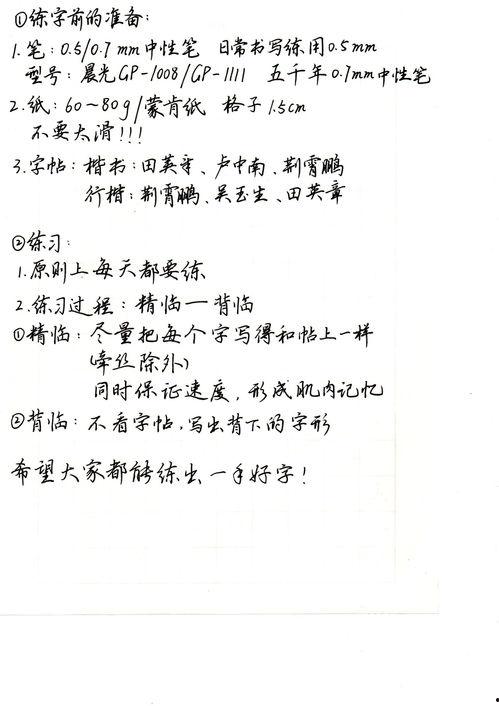 ①练字前的准备:
1.笔:0.5/0.7mm中性笔 日常书写练用0.5mm
型号:晨光GP-1008/GP-1111 五千年0.7mm中性笔
2.纸:60~80g/蒙肯纸 格子1.5cm
不要太滑!!!
3.字帖:楷书:田英章、卢中南、荆霄鹏
行楷:荆霄鹏、吴玉生、田英章
②练习:
1.原则上每天都要练
2.练习过程:精临—背临
①精临:尽量把每个字写得和帖上一样
(牵丝除外)
同时保证速度,形成肌肉记忆
②背临:不看字帖,写出背下的字形
希望大家都能练出一手好字!